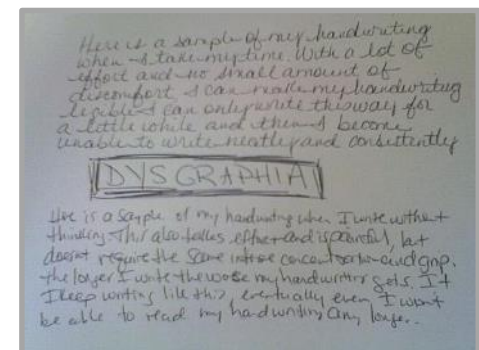 Here is a sample of my handwriting
when I take my time. With a lot of
effort and no small amount of
discomfort I can make my handwriting
legible. I can only write this way for
a little while and then I become
unable to write neatly and consistently
DYSGRAPHIA
Here is a sample of my handwriting when I write without
thinking. This also takes effort and is painful, but
doesnt require the same intense concentration and grip.
The longer I write the worse my handwriting gets. If
I keep writing like this, eventually even I wont
be able to read my handwriting any longer.